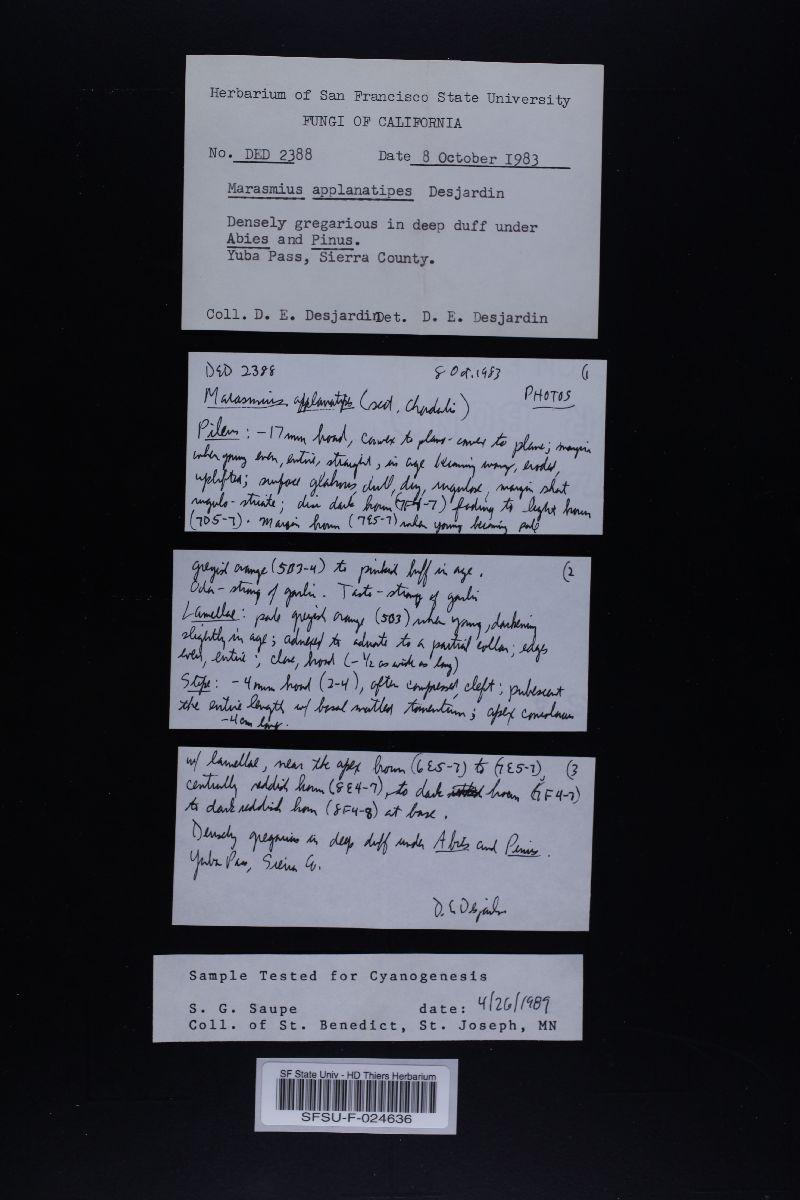 Herbarium of San Francisco State University
FUNGI OF CALIFORNIA
No. DED 2388 Date 8 October 1983
Marasmius applanatipes Desjardin
Densely gregarious in deep duff under
Abies and Pinus.
Yuba Pass, Sierra County.
Coll. D. E. Desjardin Det. D. E. Desjardin
DED 2388 8 Oct. 1983 (1
Marasmius applanatipes (sect. Chordalis) PHOTOS
Pileus: -17mm broad, convex to plano-convex to plane; margin
when young even, entire, straight, in age becoming wavy, eroded,
uplifted; surface glabrous, dull, dry, rugulose, margin short
rugulo-striate; disc dark brown (7F4-7) fading to light brown
(7D5-7). Margin brown (7E5-7) when young becoming pale
greyish orange (5B3-4) to pinkish buff in age. (2
Odor - strong of garlic. Taste - strong of garlic
Lamellae: pale greyish orange (5B3) when young, darkening
slightly in age; adnexed to adnate to a partial collar; edges
even, entire; close, broad (- 1/2 as wide as long)
Stipe: -4mm broad (2-4), often compressed, cleft; pubescent
the entire length w/ basal matted tomentum; apex concolorous
-4cm long.
w/ lamellae, near the apex brown (6E5-7) to (7E5-7), (3
centrally reddish brown (8E4-7), to dark brown (7F4-7)
to dark reddish brown (8F4-8) at base.
Densely gregarious in deep duff under Abies and Pinus.
Yuba Pass, Sierra Co.
D. E. Desjardin
Sample Tested for Cyanogenesis
S. G. Saupe date: 4/26/1989
Coll. of St. Benedict, St. Joseph, MN
SF State Univ - HD Thiers Herbarium
SFSU-F-024636